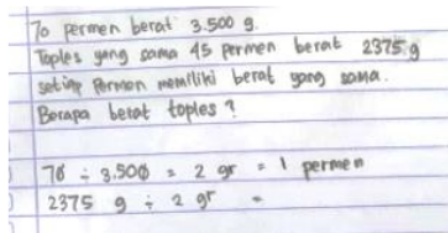 70 permen berat 3.500 g.
Toples yang sama 45 permen berat 2375 g
setiap permen memiliki berat yang sama.
Berapa berat toples?
70 ÷ 3.500 = 2 gr = 1 permen
2375 g ÷ 2 gr =